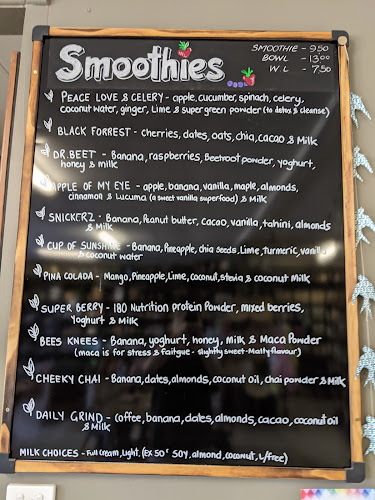 Smoothies
SMOOTHIE - 9.50
BOWL - 13.00
W L - 7.50
PEACE LOVE & CELERY - apple, cucumber, spinach, celery,
coconut water, ginger, Lime & super green powder (to detox & cleanse)
BLACK FORREST - cherries, dates, oats, chia, cacao & Milk
DR. BEET - Banana, raspberries, Beetroot powder, yoghurt,
honey & milk
APPLE OF MY EYE - apple, banana, vanilla, maple, almonds,
cinnamon & Lucuma (a sweet vanilla superfood) & Milk
SNICKERZ - Banana, Peanut butter, Cacao, vanilla, tahini, almonds
& Milk
CUP OF SUNSHINE - Banana, Pineapple, chia seeds, Lime, Turmeric, vanilla
& coconut water
PINA COLADA - Mango, Pineapple, Lime, coconut, stevia & coconut Milk
SUPER BERRY - 180 Nutrition protein Powder, mixed berries,
Yoghurt & Milk
BEES KNEES - Banana, yoghurt, honey, milk & Maca Powder
(maca is for stress & faitgue - slightly sweet-Malty flavour)
CHEEKY CHAI - Banana, dates, almonds, coconut oil, chai powder & Milk
DAILY GRIND - Coffee, banana, dates, almonds, cacao, coconut oil
& Milk
MILK CHOICES - Full Cream, Light, (EX 50c SOY, almond, coconut, L/free)